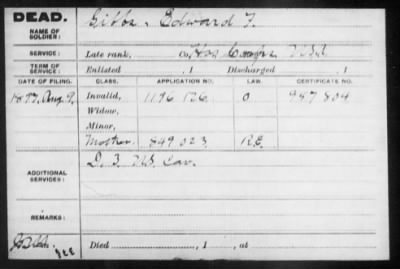 DEAD.
NAME OF SOLDIER: Gibbs, Edward F.
SERVICE: Late rank, Co. Hos. Corps, U.S.A.
TERM OF SERVICE: Enlisted , 1 Discharged , 1
DATE OF FILING. CLASS. APPLICATION NO. LAW. CERTIFICATE NO.
1897, Aug. 9. Invalid, 1196 126 0 947 804
Widow,
Minor,
Mother 849 023
ADDITIONAL SERVICES: D. 3 U.S. Cav.
REMARKS:
Died , 1 , at